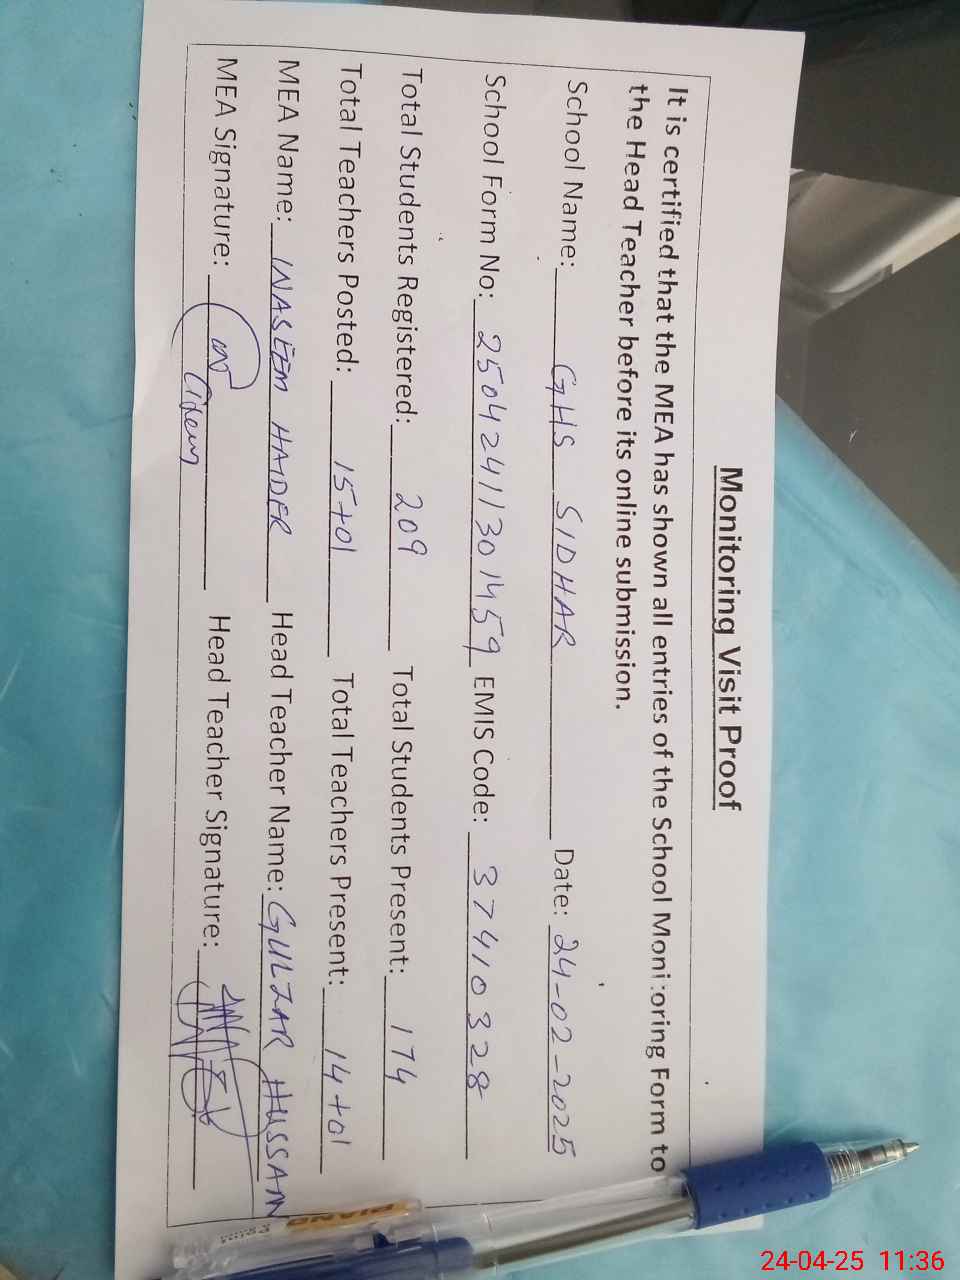 Monitoring Visit Proof
It is certified that the MEA has shown all entries of the School Monitoring Form to
the Head Teacher before its online submission.
School Name: GHS SIDHAR Date: 24-02-2025
School Form No: 25042411301459 EMIS Code: 37410328
Total Students Registered: 209 Total Students Present: 174
Total Teachers Posted: 15+01 Total Teachers Present: 14+01
MEA Name: WASEEM HAIDER Head Teacher Name: GULZAR HUSSAIN
MEA Signature: Head Teacher Signature:
PIANO
24-04-25 11:36